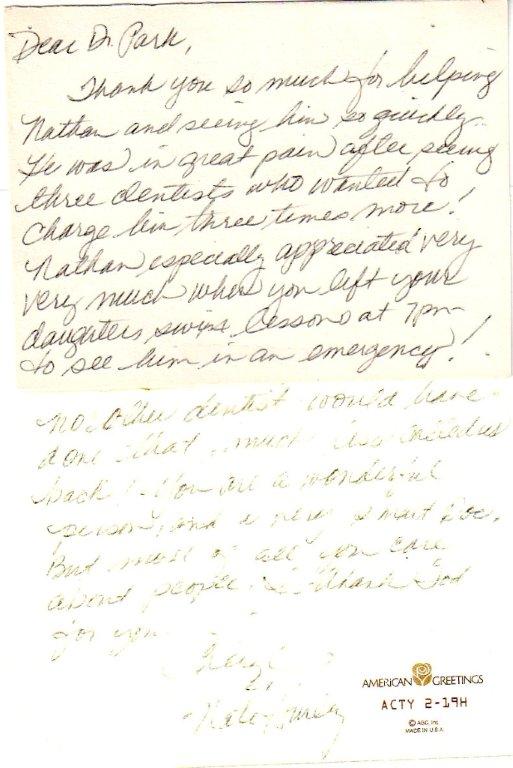 Dear Dr Park,
Thank you so much for helping
Nathan and seeing him so quickly.
He was in great pain after seeing
three dentists who wanted to
charge him three times more!
Nathan especially appreciated very
very much when you left your
daughters swim lessons at 7pm
to see him in an emergency!
No other dentist would have
done that... much less called us
back! You are a wonderful
person, and a very smart Doc.
But most of all you care
about people. I thank God
for you.
Cheryl
AMERICAN GREETINGS
ACTY 2-19H
© AGC, Inc
MADE IN U.S.A.